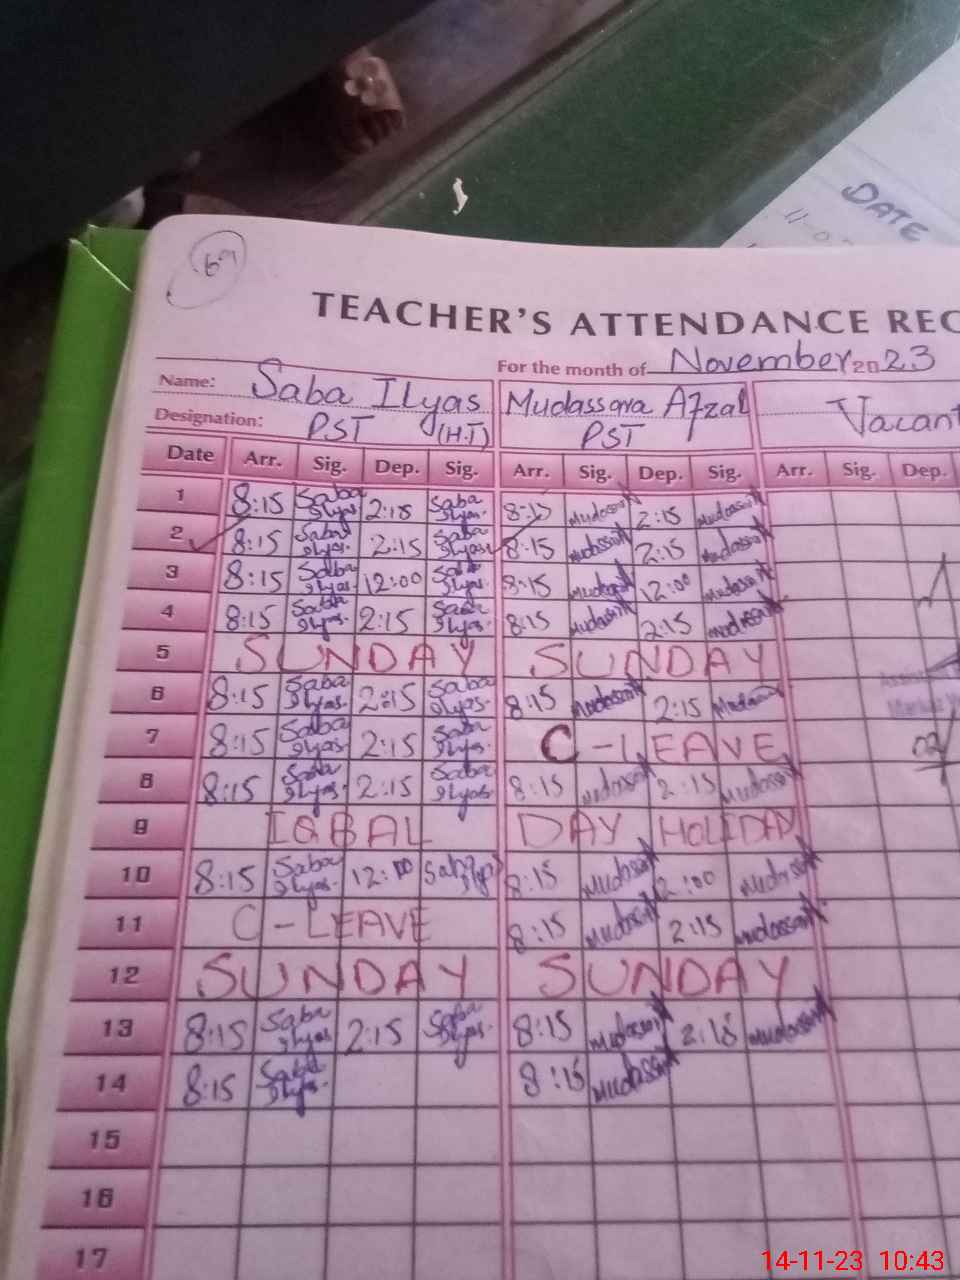 69
DATE
TEACHER'S ATTENDANCE REC
For the month of November 2023
Name: Saba Ilyas Mudassara Afzal Vacant
Designation: PST (H.T) PST
Date Arr. Sig. Dep. Sig. Arr. Sig. Dep. Sig. Arr. Sig. Dep.
1 8:15 Saba Ilyas. 2:15 Saba Ilyas. 8:15 Mudassara 2:15 Mudassara
2 8:15 Saba Ilyas. 2:15 Saba Ilyas. 8:15 Mudassara 2:15 Mudassara
3 8:15 Saba Ilyas. 12:00 Saba Ilyas. 8:15 Mudassara 12:00 Mudassara
4 8:15 Saba Ilyas. 2:15 Saba Ilyas. 8:15 Mudassara 2:15 Mudassara
5 SUNDAY SUNDAY
6 8:15 Saba Ilyas. 2:15 Saba Ilyas. 8:15 Mudassara 2:15 Mudassara
7 8:15 Saba Ilyas. 2:15 Saba Ilyas. C-LEAVE
8 8:15 Saba Ilyas. 2:15 Saba Ilyas. 8:15 Mudassara 2:15 Mudassara
9 IQBAL DAY HOLIDAY
10 8:15 Saba Ilyas. 12:00 8:15 Mudassara Mudassara
11 C-LEAVE 8:15 Mudassara 2:15 Mudassara
12 SUNDAY SUNDAY
13 8:15 Saba Ilyas 2:15 Saba Ilyas. 8:15 Mudassara 2:15 Mudassara
14 8:15 Saba Ilyas. 8:15 Mudassara
15
16
17
14-11-23 10:43